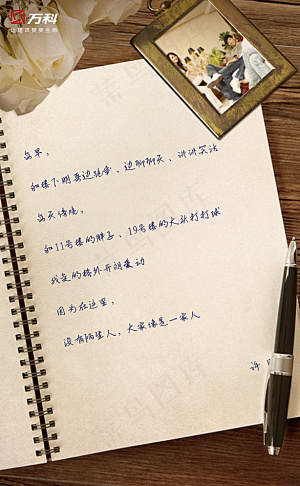 万科
让建筑赞美生命
每早，
和楼下明哥边跑步、边聊聊天、讲讲笑话
每天傍晚，
和11号楼的胖子、19号楼的大头打打球
我变的格外开朗爱动
因为在这里，
没有陌生人，大家像是一家人
许